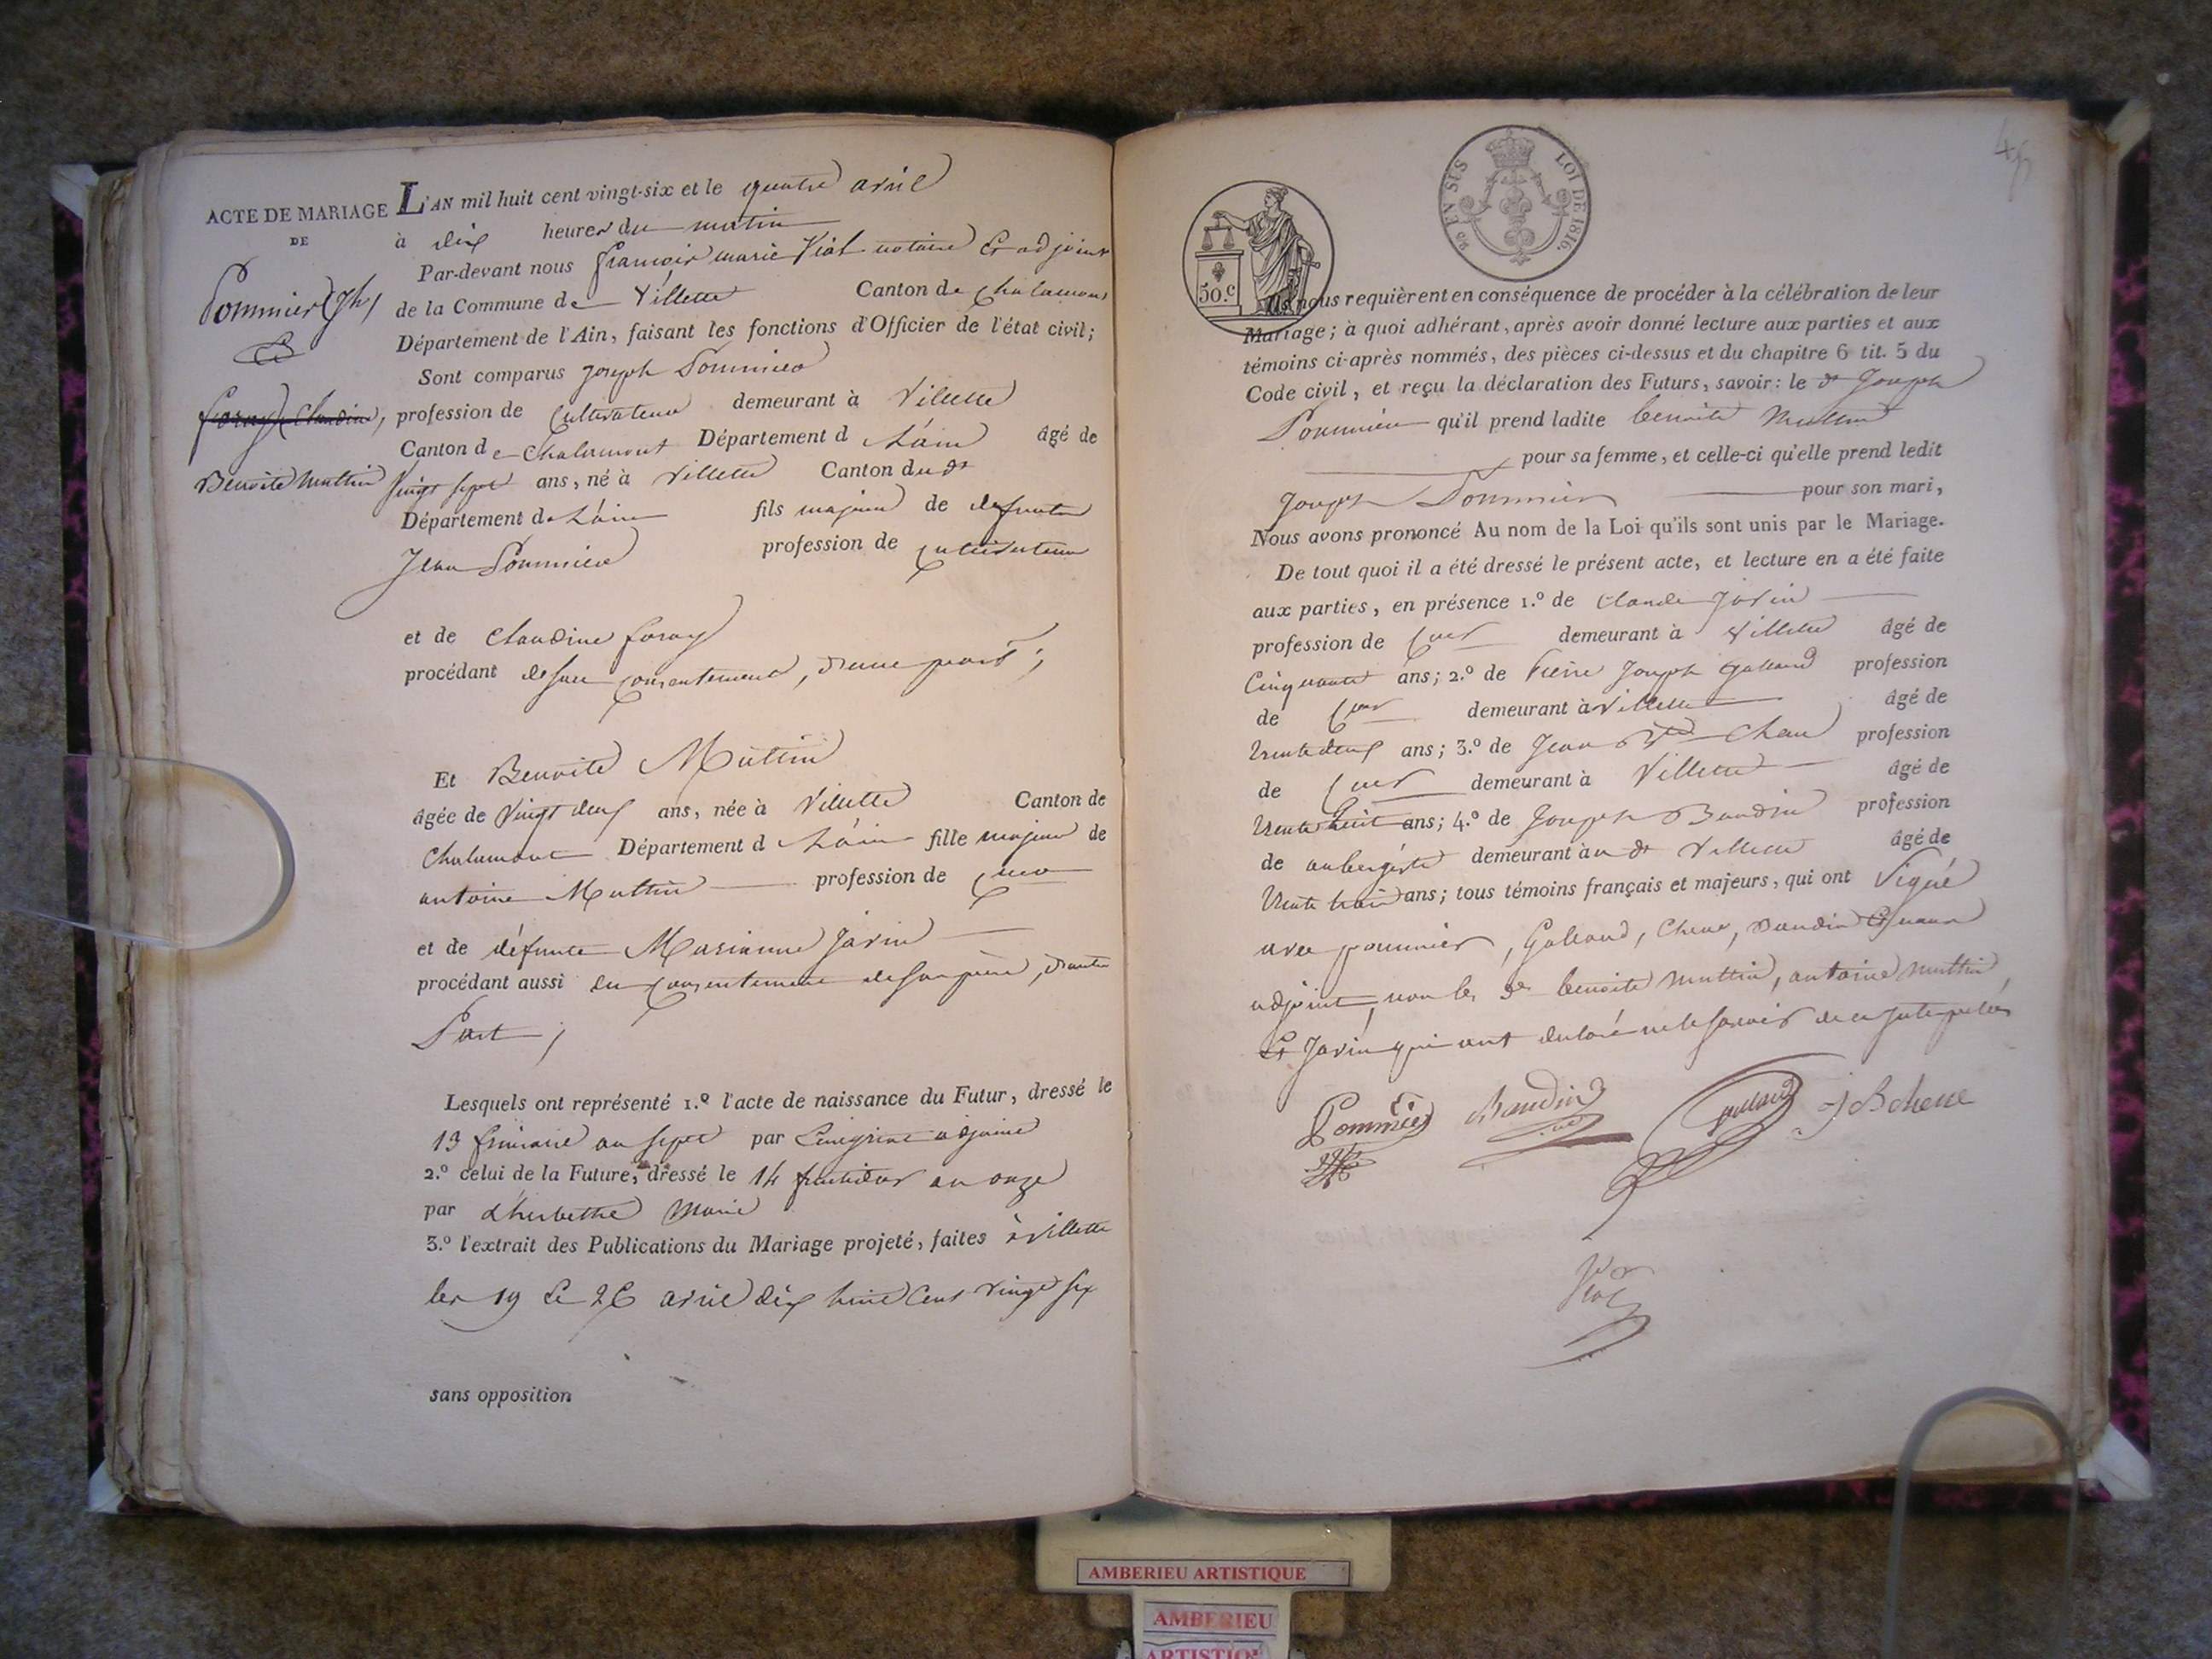 ACTE DE MARIAGE
DE
Pommier (Jh)
&
foray Claudine,
Benoite Muttin
L'AN mil huit cent vingt-six et le quatre avril
à dix heures du matin
Par-devant nous françois marie Vial notaire Et adjoint
de la Commune de Villette Canton de Chalamont
Département de l'Ain, faisant les fonctions d'Officier de l'état civil;
Sont comparus joseph Pommier
profession de Cultivateur demeurant à Villette
Canton de Chalamont Département d L'ain âgé de
Vingt sept ans, né à Villette Canton du dt
Département de L'ain fils majeur de defunt
Jean Pommier profession de Cultivateur
et de Claudine foray
procédant de son consentement, d'une part;
Et Benoite Muttin
âgée de Vingt deux ans, née à Villette Canton de
Chalamont Département d L'ain fille majeur de
antoine Muttin profession de
et de défunte Marianne Jarin
procédant aussi du consentement de son père, d'autre
Part;
Lesquels ont représenté 1.º l'acte de naissance du Futur, dressé le
13 frimaire an sept par adjoint
2.º celui de la Future, dressé le 14 fructidor an onze
par d'herbethe Maire
3.º l'extrait des Publications du Mariage projeté, faites à Villette
les 19 & 26 avril dix huit Cent vingt six
sans opposition
45
50.c
LOI DE 1816.
Ils nous requièrent en conséquence de procéder à la célébration de leur
Mariage; à quoi adhérant, après avoir donné lecture aux parties et aux
témoins ci-après nommés, des pièces ci-dessus et du chapitre 6 tit. 5 du
Code civil, et reçu la déclaration des Futurs, savoir: le dt Joseph
Pommier qu'il prend ladite benoite Muttin
pour sa femme, et celle-ci qu'elle prend ledit
Joseph Pommier pour son mari,
Nous avons prononcé Au nom de la Loi qu'ils sont unis par le Mariage.
De tout quoi il a été dressé le présent acte, et lecture en a été faite
aux parties, en présence 1.º de Claude Jarin
profession de demeurant à Villette âgé de
Cinquante ans; 2.º de Pierre Joseph Galland profession
de demeurant à Villette âgé de
trente deux ans; 3.º de Jean Bte Chene profession
de demeurant à Villette âgé de
trente huit ans; 4.º de Joseph Baudin profession
de aubergiste demeurant à u dt Villette âgé de
trente trois ans; tous témoins français et majeurs, qui ont signé
avec pommier, Galland, Chene, Baudin Et nous
adjoint, non les dt benoite Muttin, antoine Muttin
Et Jarin qui ont déclaré ne le savoir de ce interpellés
Pommier Baudin galland J B chene
Vial
AMBERIEU ARTISTIQUE
AMBERIEU
ARTISTIQUE